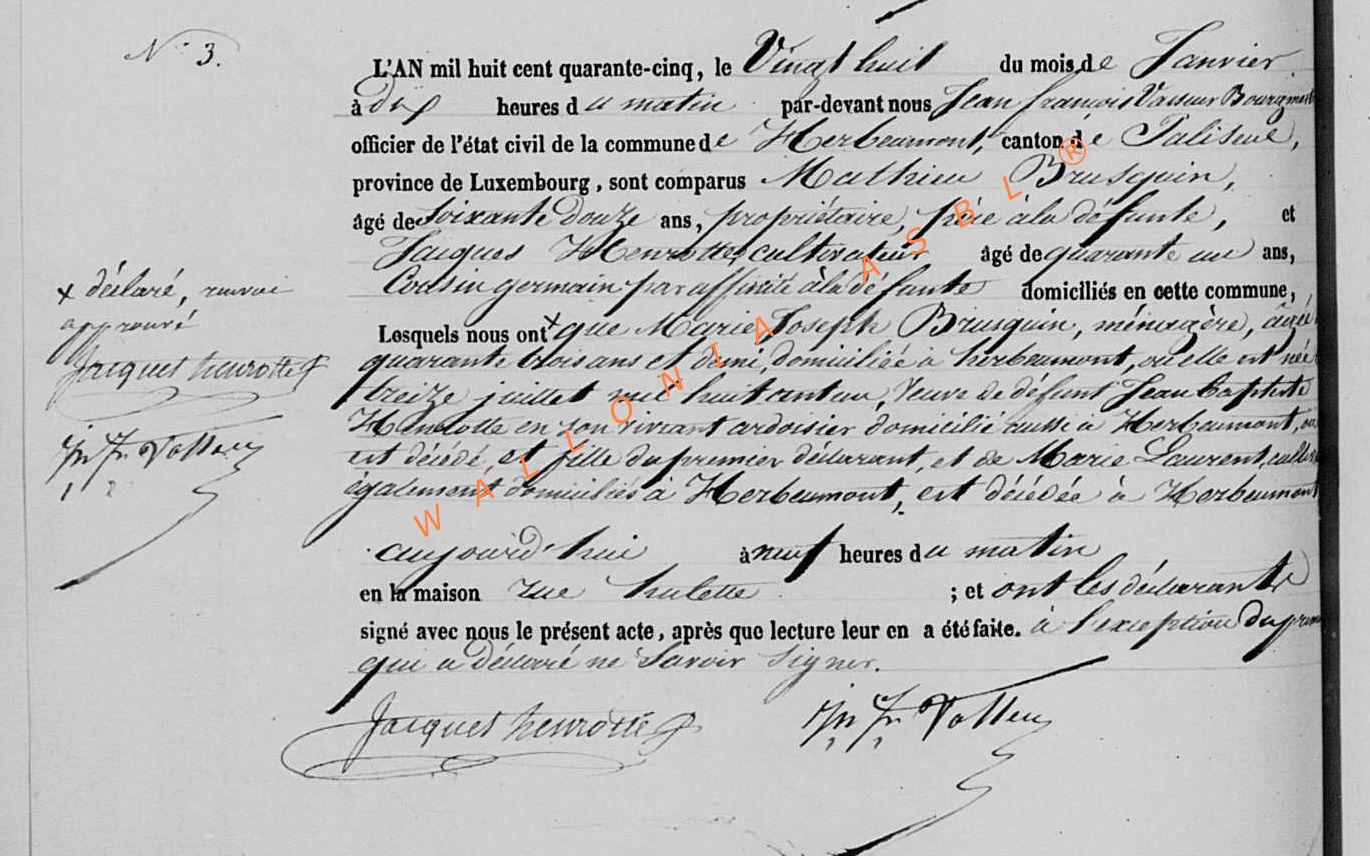 N° 3.
L'AN mil huit cent quarante-cinq, le Vingt huit du mois de Janvier
à dix heures du matin par-devant nous Jean françois Bourgmest
officier de l'état civil de la commune de Herbeumont, canton de Paliseul,
province de Luxembourg, sont comparus Mathieu Brusquin,
âgé de soixante douze ans, propriétaire, père à la défunte, et
Jacques Henrotte, cultivateur âgé de quarante un ans,
Cousin germain par affinité à la défunte domiciliés en cette commune,
x déclaré, renvoi
approuvé
Jacques henrotte
Jn Fr
Lesquels nous ont x que Marie Joseph Brusquin, ménagère, âgée
quarante trois ans et demi, domiciliée à herbeumont, où elle est née
treize juillet mil huit cent un, Veuve de défunt Jean Baptiste
Henrotte en son vivant ardoisier domicilié aussi à Herbeumont, où
est décédé, et fille du premier déclarant, et de Marie Laurent,
également domiciliés à Herbeumont, est décédée à Herbeumont
aujourd'hui à neuf heures du matin
en la maison rue hulette ; et ont les déclarants
signé avec nous le présent acte, après que lecture leur en a été faite. à l'exception du prem
qui a déclaré ne Savoir Signer.
Jacques henrotte Jn Fr
WALLONIA ASBL ®